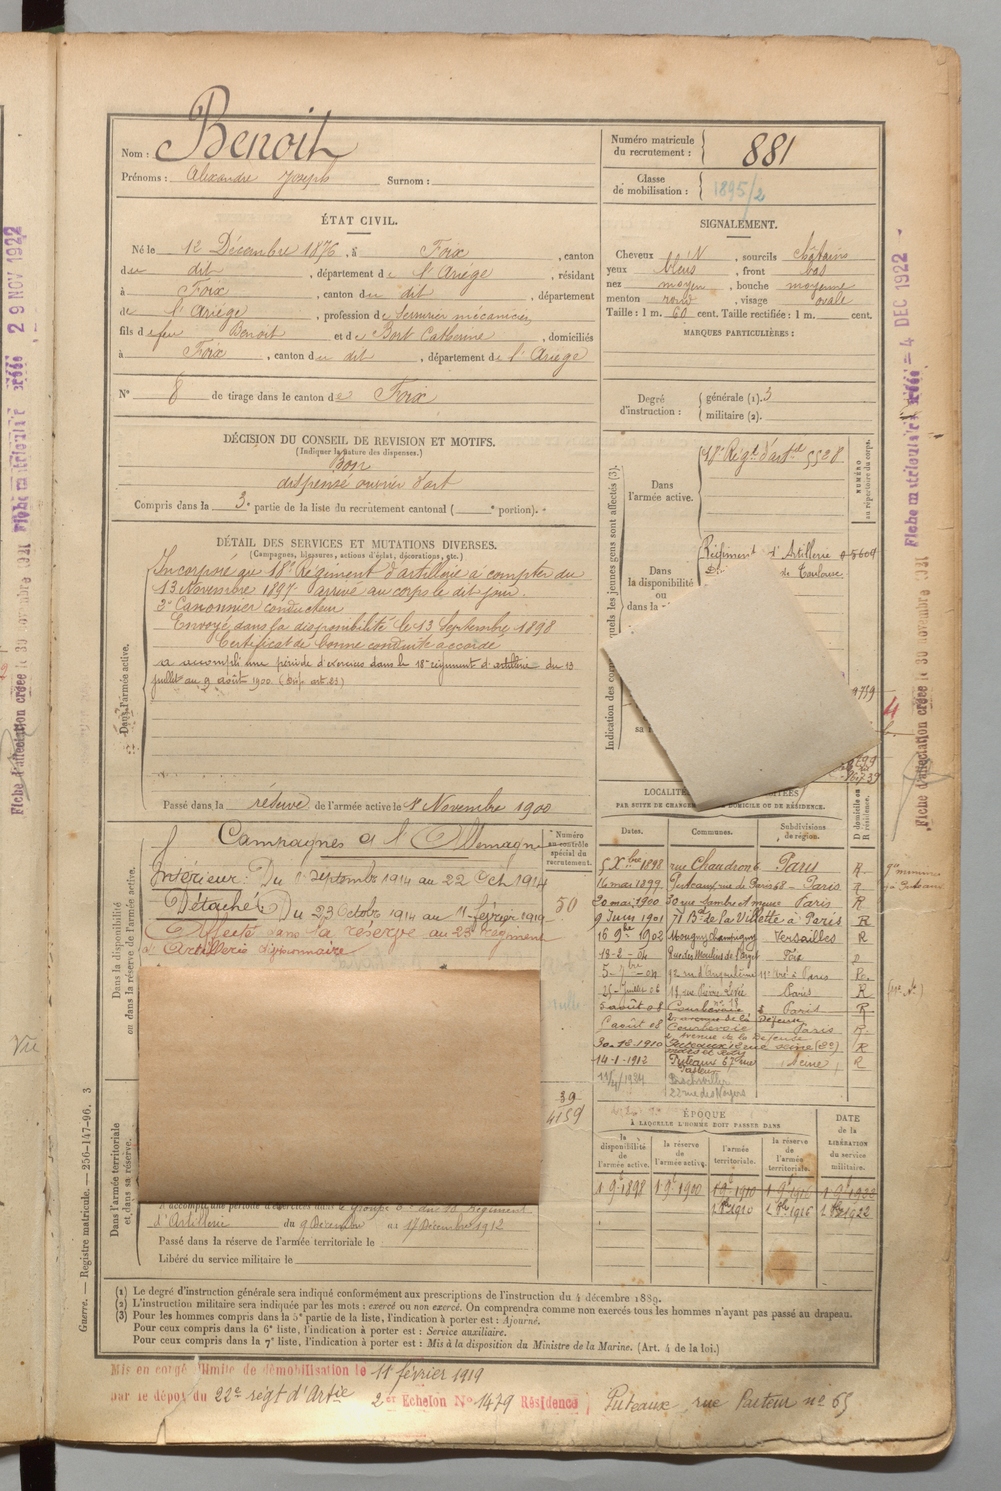 Nom : Benoit
Prénoms : Alexandre Joseph Surnom :
Numéro matricule du recrutement : 881
Classe de mobilisation : 1895/2
ÉTAT CIVIL.
Né le 12 Décembre 1876, à Foix, canton
du dit, département de l'Ariège, résidant
à Foix, canton du dit, département
de l'Ariège, profession de Serrurier mécanicien
fils de feu Benoit et de Bort Catherine, domiciliés
à Foix, canton du dit, département de l'Ariège
N° 8 de tirage dans le canton de Foix
SIGNALEMENT.
Cheveux N, sourcils Châtains
yeux bleus, front bas
nez moyen, bouche moyenne
menton rond, visage ovale
Taille : 1 m. 60 cent. Taille rectifiée : 1 m. cent.
MARQUES PARTICULIÈRES :
Degré d'instruction : générale (1). 3
militaire (2).
DÉCISION DU CONSEIL DE REVISION ET MOTIFS.
(Indiquer la nature des dispenses.)
Bon
dispensé ouvrier d'art
Compris dans la 3e partie de la liste du recrutement cantonal ( e portion).
DÉTAIL DES SERVICES ET MUTATIONS DIVERSES.
(Campagnes, blessures, actions d'éclat, décorations, etc.)
Dans l'armée active.
Incorporé au 18e Régiment d'artillerie à compter du
13 Novembre 1897 arrivé au corps le dit jour.
2e Canonnier conducteur
Envoyé dans la disponibilité le 13 Septembre 1898
Certificat de bonne conduite accordé
a accompli une période d'exercices dans le 18e régiment d'artillerie du 13
juillet au 9 août 1900.
Passé dans la réserve de l'armée active le 1er Novembre 1900
NUMÉRO au répertoire du corps.
Dans l'armée active.
18e Régt d'artie 5528
Dans la disponibilité ou
Régiment d'Artillerie
de Toulouse
9759
PAR SUITE DE CHANGE DOMICILE OU DE RÉSIDENCE.
D domicile ou R résidence.
Dates. Communes. Subdivisions de région.
5 Xbre 1898 rue Chaudron 6 Paris R
16 mai 1899 Puteaux, rue de Paris 68 - Paris R
20 mai 1900 Paris R
9 Juin 1901 71 Bd de la Villette à Paris R
16 9bre 1902 Champigny Versailles R
18-2-04 Foix D
Paris R
Paris R
5 août 08 Courbevoie Paris R
2 avenue de la Défense
août 08 Courbevoie Paris R
2 Avenue de la Défense
30-12-1910 Puteaux R
14-1-1912 Puteaux 67 rue Pasteur Seine R
Dans la disponibilité ou dans la réserve de l'armée active.
Numéro au contrôle spécial du recrutement.
Campagnes et l'Allemagne
Intérieur : Du 1 Septembre 1914 au 22 Oct 1914
Détaché Du 23 Octobre 1914 au 11 février 1919
50
Affecté dans la réserve au 23e régiment
d'Artillerie divisionnaire
39
4159
ÉPOQUE
À LAQUELLE L'HOMME DOIT PASSER DANS
DATE de la LIBÉRATION du service militaire.
la disponibilité de l'armée active. la réserve de l'armée active. l'armée territoriale. la réserve de l'armée territoriale.
1 9 1898 1 9 1900 1 9 1910 1 9 1916 1 9 1922
1 8bre 1910 1 8bre 1916 1 8bre 1922
Dans l'armée territoriale et dans sa réserve.
A accompli une période d'exercices dans le Groupe du 18 Régiment
d'Artillerie du 9 Décembre au 17 Décembre 1912
Passé dans la réserve de l'armée territoriale le
Libéré du service militaire le
(1) Le degré d'instruction générale sera indiqué conformément aux prescriptions de l'instruction du 4 décembre 1889.
(2) L'instruction militaire sera indiquée par les mots : exercé ou non exercé. On comprendra comme non exercés tous les hommes n'ayant pas passé au drapeau.
(3) Pour les hommes compris dans la 5e partie de la liste, l'indication à porter est : Ajourné.
Pour ceux compris dans la 6e liste, l'indication à porter est : Service auxiliaire.
Pour ceux compris dans la 7e liste, l'indication à porter est : Mis à la disposition du Ministre de la Marine. (Art. 4 de la loi.)
Mis en congé illimité de démobilisation le 11 février 1919
par le dépôt du 22e régt d'Artie 2er Echelon N° 1479 Résidence Puteaux, rue Pasteur n° 65
Guerre. — Registre matricule. — 256-147-96. 3
Fiche d'affectation créée le 30 novembre 1921 Fiche matriculaire créée 29 NOV 1922
Fiche d'affectation créée le 30 novembre 1921 Fiche matriculaire créée = 4 DEC 1922
Vu